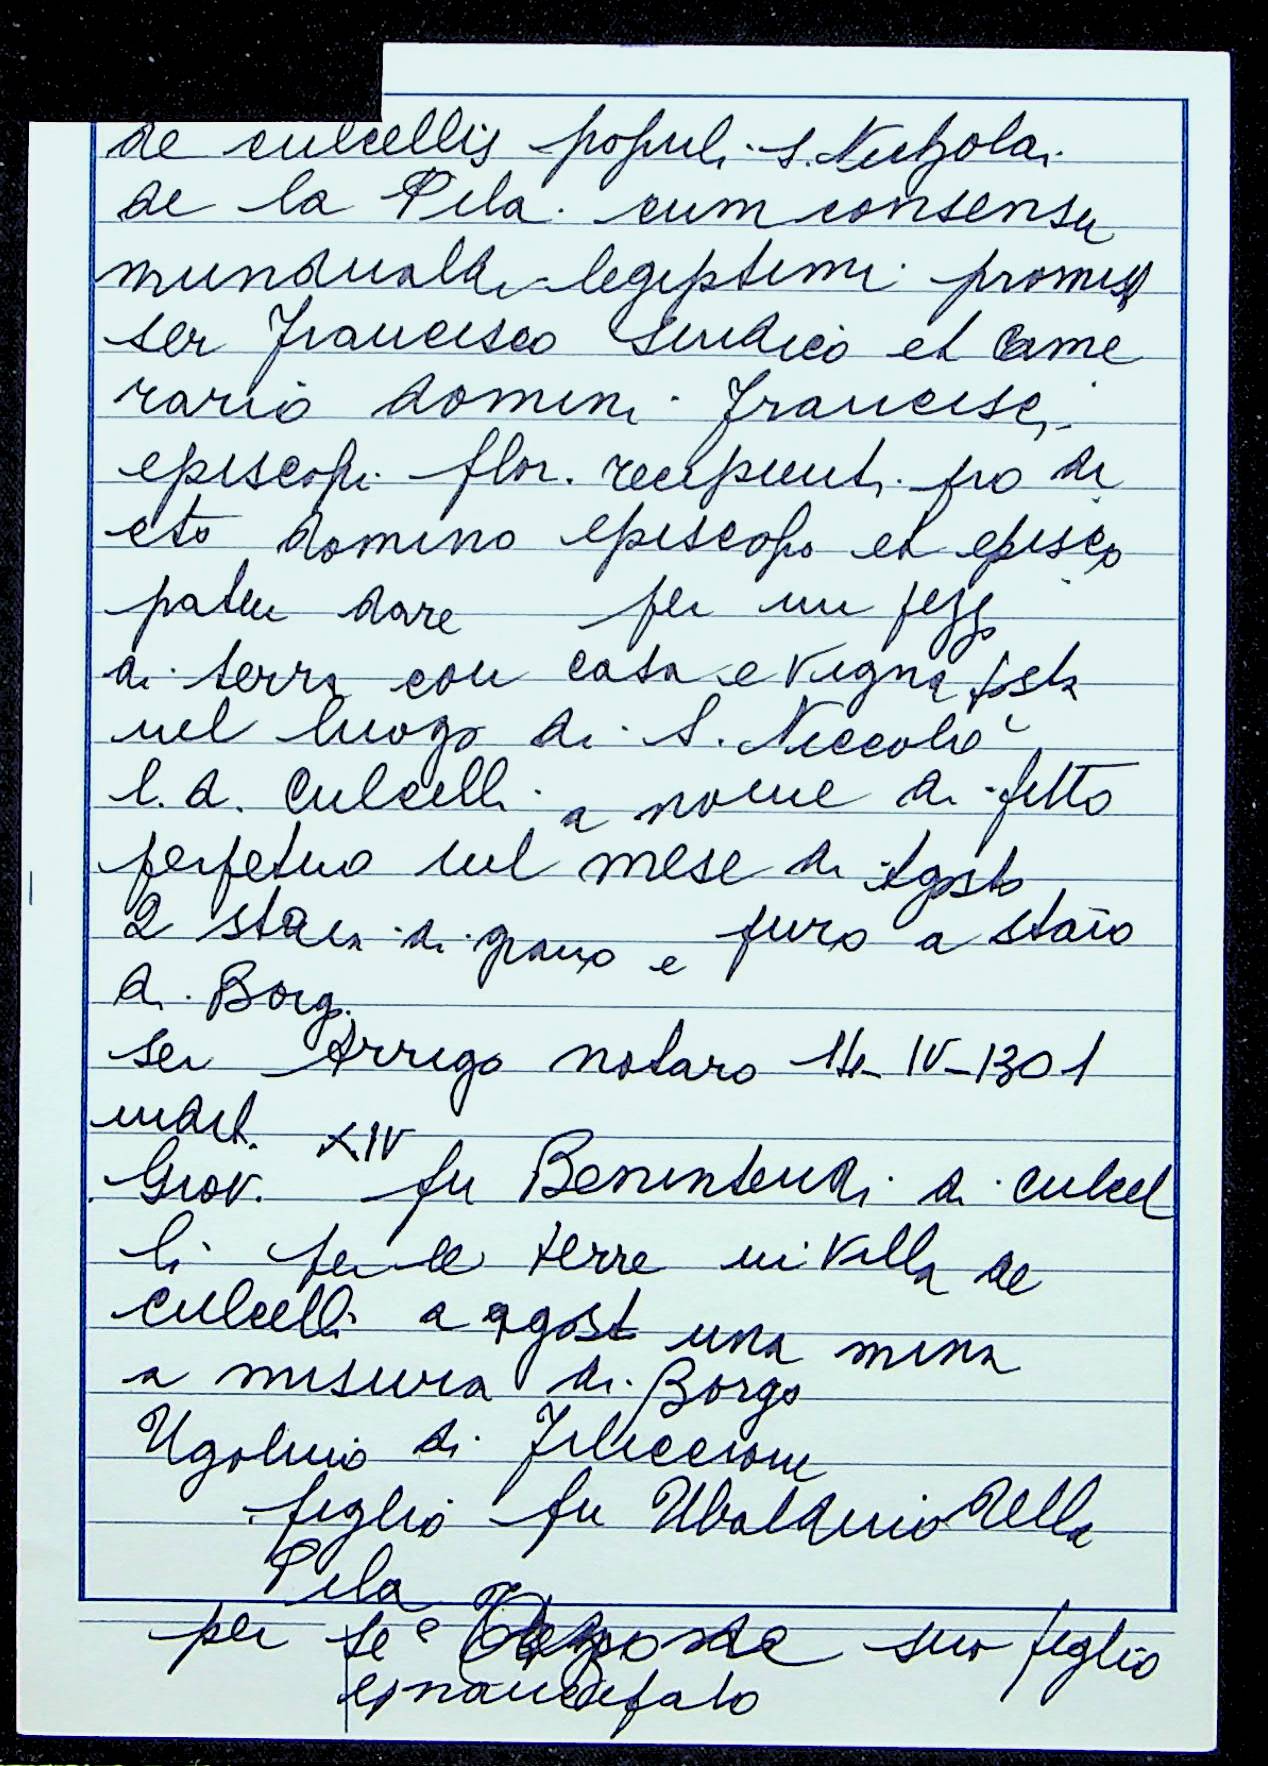 de culcellis populi S. Nicholai
de la Pila cum consensu
mundualdi legiptimi promisit
ser Francisco Sindico et Came
rario domini Francisci
episcopi flor. recipienti pro di
cto domino episcopo et episco
patu dare per un pezzo
di terra con casa e vigna posta
nel luogo di S. Niccolò
l. d. Culcelli a nome di fitto
perpetuo nel mese di Agosto
2 staia di grano e puro a staio
di Borgo
ser Arrigo notaro IV-1301
indict. XIV
Giov. fu Benintendi di culcel
li per le terre in villa de
culcelli a agosto una mina
a misura di Borgo
Ugolino di Feliccione
figlio fu Ubaldino della
Pila
per se e suo figlio
emancipato